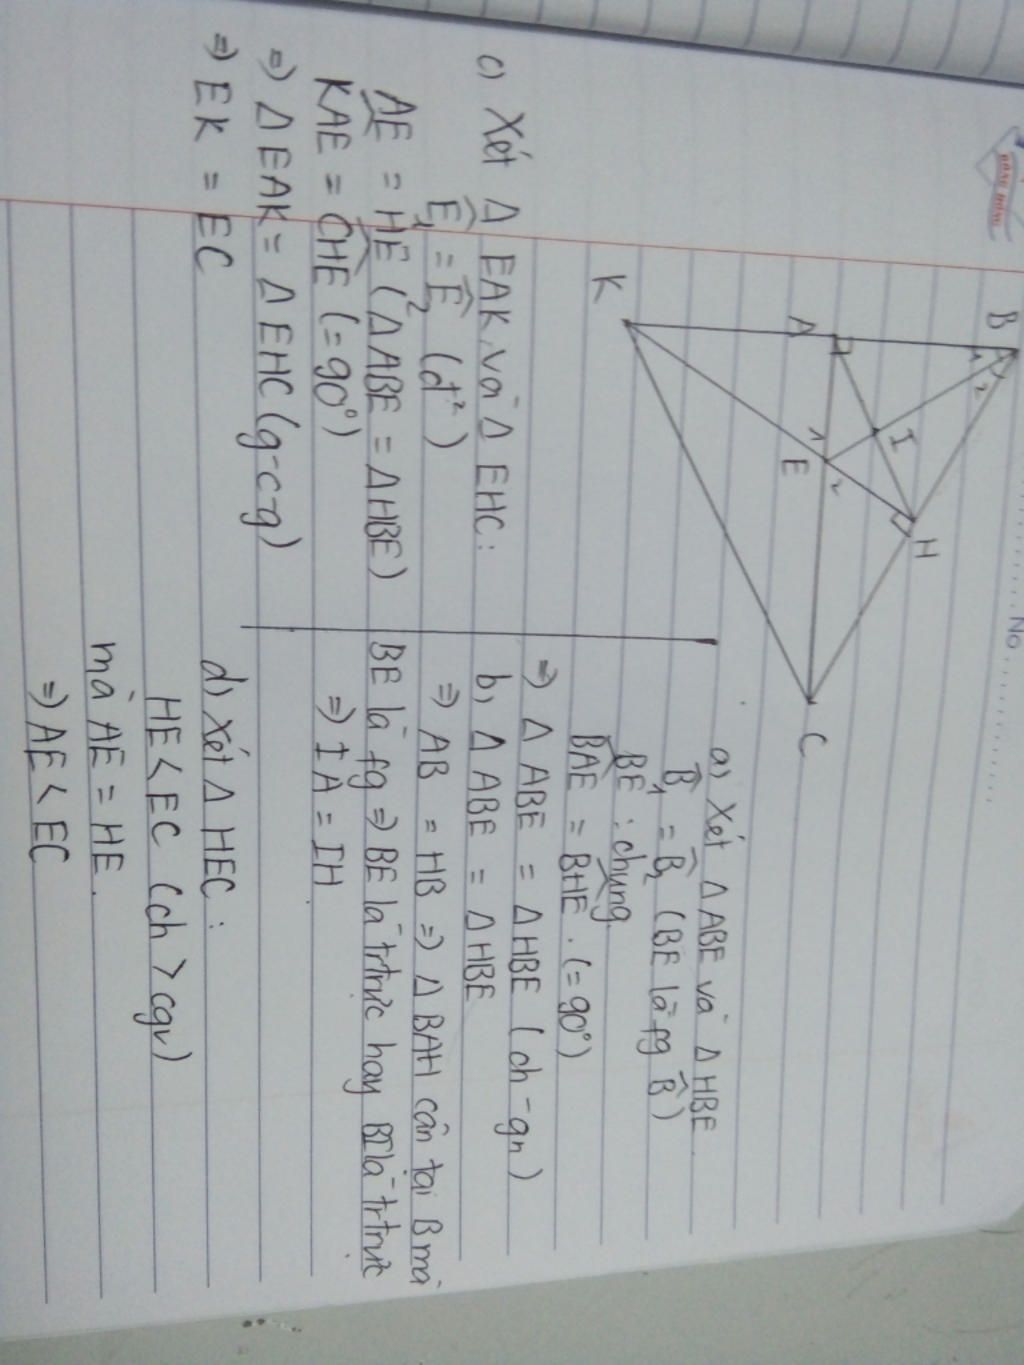 No
B
1
2
A
I
H
1
E
2
K
C
a) Xét Δ ABE và Δ HBE
B̂₁ = B̂₂ (BE là fg B̂)
BE : chung.
BAE = BHE. (=90°)
=) Δ ABE = Δ HBE (ch - gn)
b, Δ ABE = Δ HBE
=) AB = HB =) Δ BAH cân tại B mà
BE là fg =) BE là trtrực hay BI là trtrực
=) IA = IH.
c) Xét Δ EAK và Δ EHC:
Ê₁ = Ê₂ (đ²)
AE = HE (Δ ABE = Δ HBE)
KAE = CHE (=90°)
=) Δ EAK = Δ EHC (g-c-g)
=) EK = EC
d) Xét Δ HEC:
HE < EC (ch > cgv)
mà AE = HE.
=) AE < EC